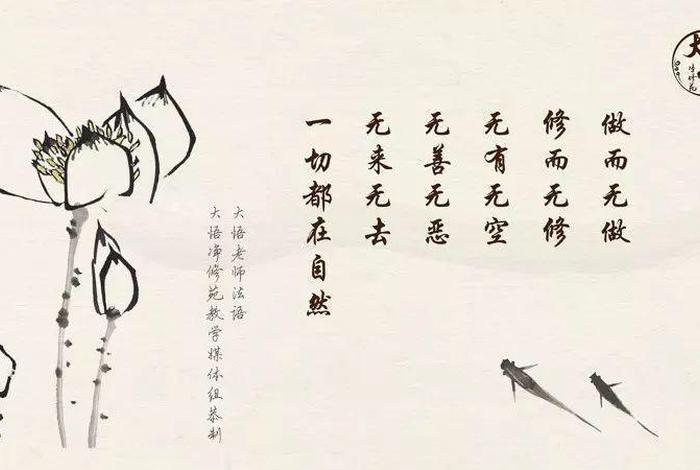 做而无做
修而无修
无有无空
无善无恶
无来无去
一切都在自然
大悟老师法语
大悟净修苑教学媒体组恭制